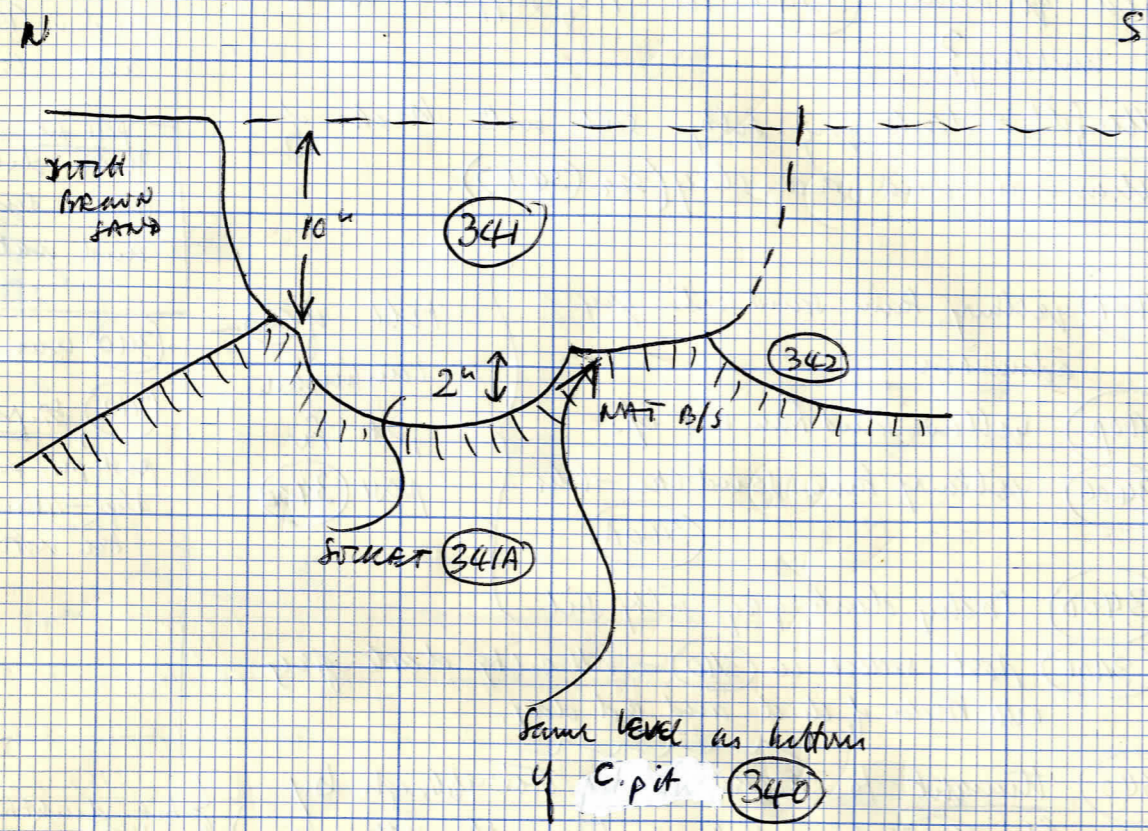 N
S
DITCH
BROWN
SAND
10"
341
342
2"
NAT B/S
SOCKET 341A
Same LEVEL as bottom
of C.pit 340